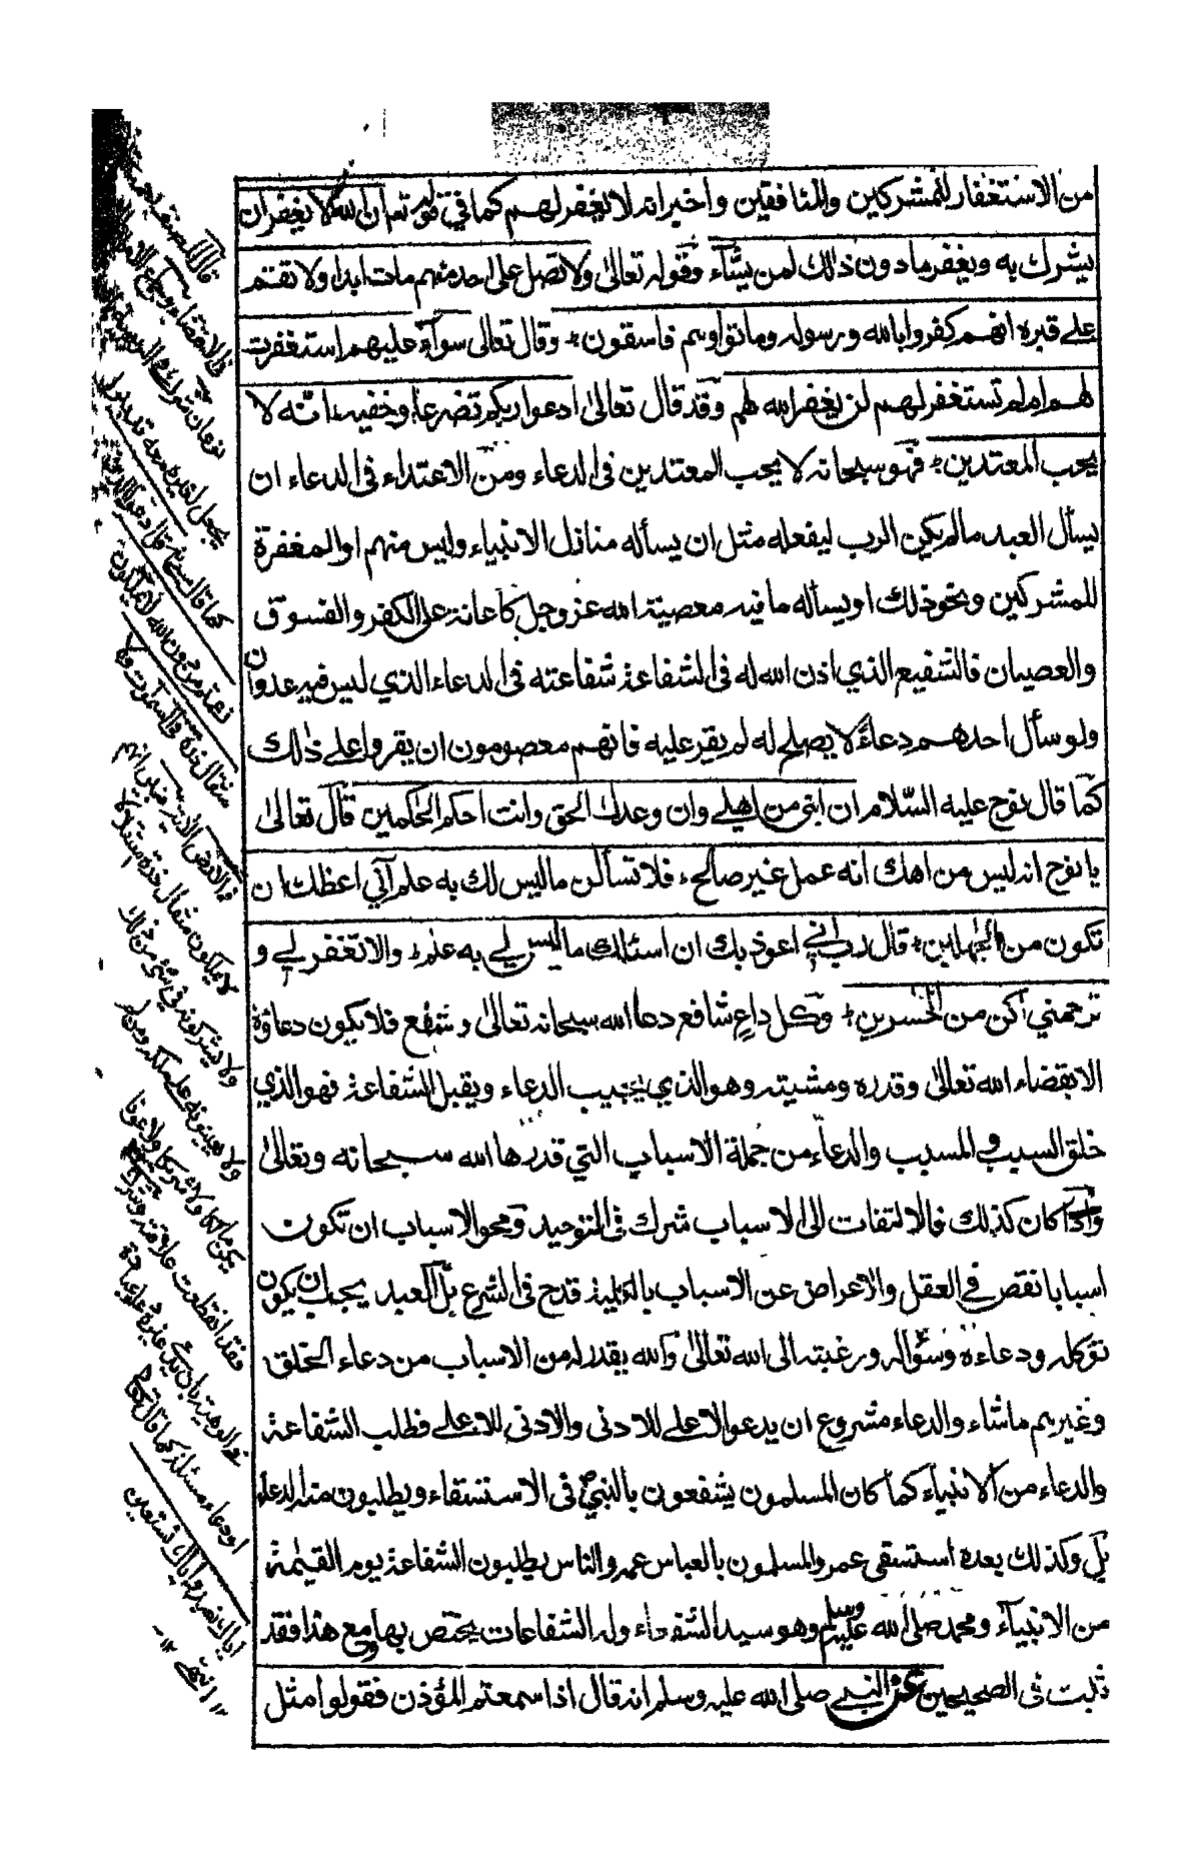 من الاستغفار للمشركين والمنافقين واخبر انه لا يغفر لهم كما في قوله تعالى ان الله لا يغفر ان
يشرك به ويغفر ما دون ذلك لمن يشآء وقوله تعالىٰ ولا تصل على احد منهم مات ابدا ولا تقم
على قبره انهم كفروا بالله ورسوله وماتوا وهم فاسقون وقال تعالى سوآء عليهم استغفرت
لهم ام لم تستغفر لهم لن يغفر الله لهم وقد قال تعالىٰ ادعوا ربكم تضرعا وخفية انه لا
يحب المعتدين فهو سبحانه لا يحب المعتدين في الدعاء ومن الاعتداء في الدعاء ان
يسأل العبد مالم يكن الرب ليفعله مثل ان يسأله منازل الانبياء وليس منهم او المغفرة
للمشركين ونحو ذلك او يسأله ما فيه معصية الله عز وجل كاعانة على الكفر والفسوق
والعصيان فالشفيع الذي اذن الله له في الشفاعة شفاعته في الدعاء الذي ليس فيه عدوان
ولو سأل احدهم دعاءً لا يصلح له لم يقر عليه فانهم معصومون ان يقروا على ذلك
كما قال نوح عليه السّلام ان ابني من اهلي وان وعدك الحق وانت احكم الحٰكمين قال تعالىٰ
يا نوح انه ليس من اهلك انه عمل غير صالح فلا تسألن ماليس لك به علم اني اعظك ان
تكون من الجٰهلين قال رب اني اعوذ بك ان اسئلك ماليس لي به علم والا تغفر لي و
ترحمني اكن من الخٰسرين وكل داعٍ شافع دعا الله سبحانه تعالىٰ وشفع فلا يكون دعاؤه
الا بقضاء الله تعالىٰ وقدره ومشيته وهو الذي يجيب الدعاء ويقبل الشفاعة فهو الذي
خلق السبب والمسبب والدعاء من جملة الاسباب التي قدرها الله سبحانه وتعالىٰ
واذا كان كذلك فالالتفات الى الاسباب شرك في التوحيد ومحو الاسباب ان تكون
اسبابا نقص في العقل والاعراض عن الاسباب بالكلية قدح في الشرع بل العبد يجب ان يكون
توكله ودعاءه وسؤاله ورغبته الى الله تعالىٰ والله يقدر له من الاسباب من دعاء الخلق
وغيرهم ماشاء والدعاء مشروع ان يدعو الاعلى للادنى والادنى للاعلى فطلب الشفاعة
والدعاء من الانبياء كما كان المسلمون يشفعون بالنبي في الاستسقاء ويطلبون منه الدعاء
بل وكذلك بعده استسقى عمر والمسلمون بالعباس عمه والناس يطلبون الشفاعة يوم القيٰمة
من الانبيآء ومحمد صلى الله عليه وسلم وهو سيد الشفعاء وله الشفاعات يختص بها ومع هذا فقد
ثبت في الصحيحين عن النبي صلى الله عليه وسلم انه قال اذا سمعتم المؤذن فقولوا مثل
يجعل لغيره معه تدبيرا
كما قال سبحانه قل ادعوا الذين
زعمتم من دون الله لا يملكون
مثقال ذرة في السمٰوٰت ولا
في الارض الآية فبين انهم
لا يملكون مثقال ذرة استقلالا
ولا يشركونه في شئ من ذلك
ولا يعينونه على ملكه ومن لم
يكن مالكا ولا شريكا ولا عونا
فقد انقطعت علاقته
او دعاء مسئلة كما قال تعالى
اياك نعبد واياك نستعين
انتهى ١٢